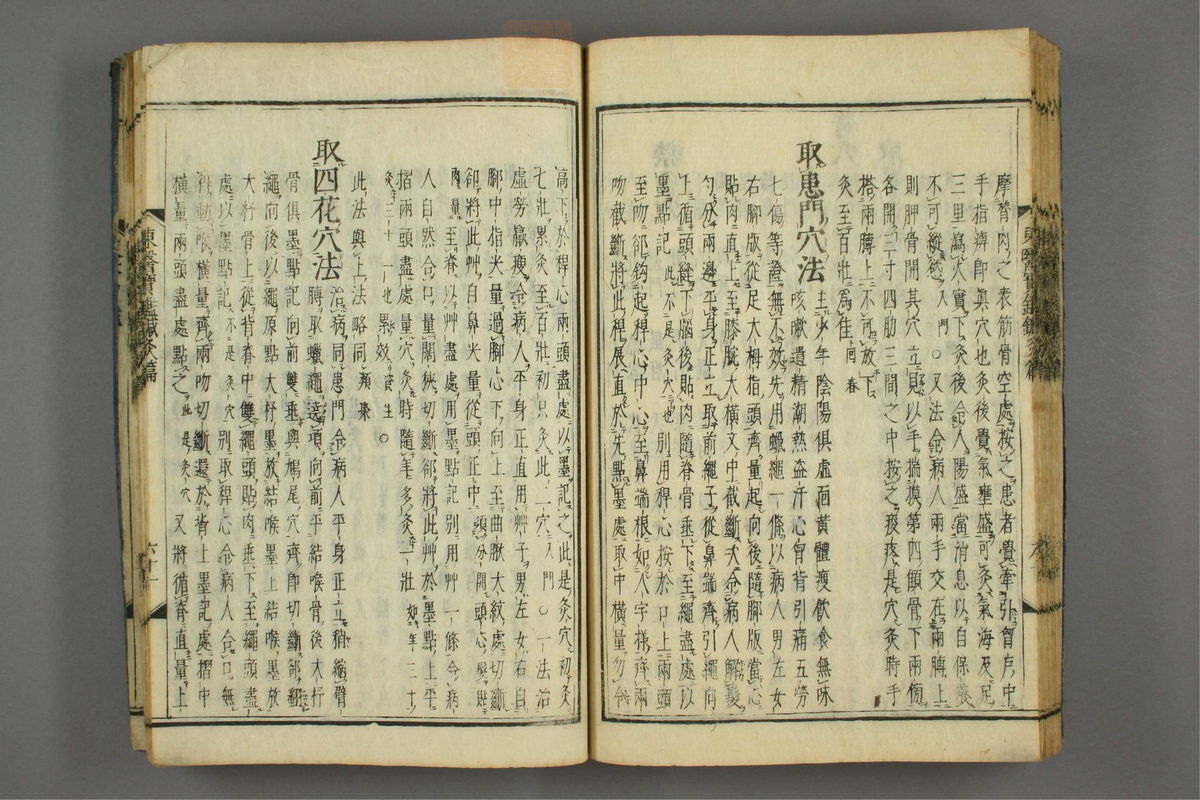 摩脊肉之表筋骨空處按之患者覺牽引胷戶中
手指痹卽眞穴也灸後覺氣壅盛可灸氣海及足
三里瀉火實下灸後令人陽盛當消息以自保養
不可縱慾入門○又法令病人兩手交在兩膊上
則胛骨開其穴立見以手揣摸第四顀骨下兩傍
各開三寸四肋三間之中按之痠疼是穴灸時手
搭兩膊上不可放下灸至百壯爲佳回春
取患門穴法
主少年陰陽俱虛面黃體瘦飮食無味
咳嗽遺精潮熱盜汗心胷背引痛五勞
七傷等證無不效先用蠟繩一條以病人男左女
右脚版從足大拇指頭齊量起向後隨脚版當心
貼肉直上至膝腕大橫文中截斷次令病人解髮
勻分兩邊平身正立取前繩子從鼻端齊引繩向
上循頭縫下腦後貼肉隨脊骨垂下至繩盡處以
墨點記此不是灸穴也別用稈心按於口上兩頭
至吻却鈎起稈心中心至鼻端根如人字樣齊兩
吻截斷將此稈展直於先點墨處取中橫量勿令
高下於稈心兩頭盡處以墨記之此是灸穴初灸
七壯累灸至百壯初只灸此二穴入門○一法治
虛勞羸瘦令病人平身正直用艸子男左女右自
脚中指尖量過脚心下向上至曲䐐大紋處切斷
却將此艸自鼻尖量從頭正中頭分開頭心髮貼
肉量至脊以艸盡處用墨點記別用艸一條令病
人自然合口量闊狹切斷却將此艸於墨點上平
摺兩頭盡處量穴灸時隨年多灸一壯如年三十
灸三十一也累效資生○
此法與上法略同類聚
取四花穴法
治病同患門令病人平身正立稍縮臂
膊取蠟繩遶項向前平結喉骨後大杼
骨俱墨點記向前雙垂與鳩尾穴齊卽切斷却翻
繩向後以繩原點大杼墨放結喉墨上結喉墨放
大杼骨上從背脊中雙繩頭貼肉垂下至繩頭盡
處以墨點記不是灸穴別取稈心令病人合口無
得動喉橫量齊兩吻切斷還於背上墨記處摺中
橫量兩頭盡處點之此是灸穴又將循脊直量上